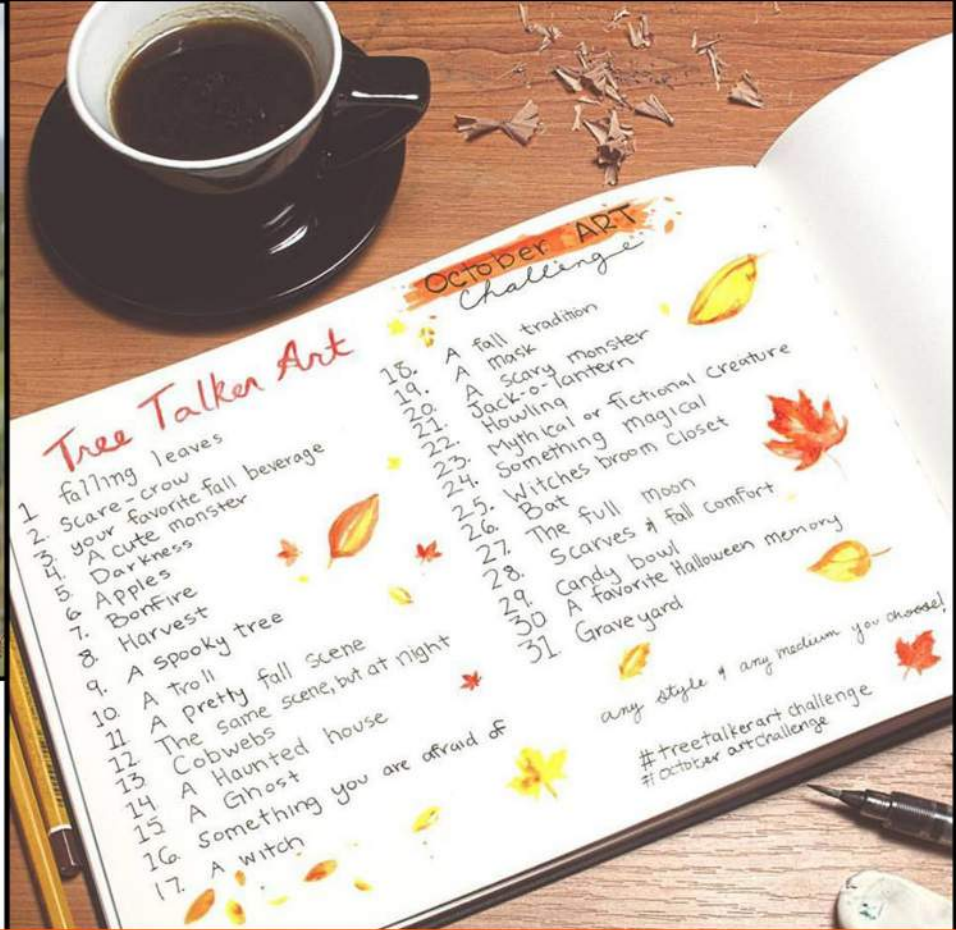 Tree Talker Art
October ART
Challenge
1 falling leaves
2. Scare-crow
3. your favorite fall beverage
4. A cute monster
5. Darkness
6 Apples
7. Bonfire
8. Harvest
9. A spooky tree
10. A troll
11 A pretty fall scene
12 The same scene, but at night
13 Cobwebs
14 A Haunted house
15 A Ghost
16. Something you are afraid of
17. A witch
18. A fall tradition
19. A mask
20. A scary monster
21. Jack-o-lantern
22. Howling
23. Mythical or fictional creature
24. Something magical
25. Witches broom closet
26. Bat
27. The full moon
28. Scarves & fall comfort
29. Candy bowl
30 A favorite Halloween memory
31. Graveyard
any style & any medium you choose!
#treetalkerart challenge
#october artchallenge